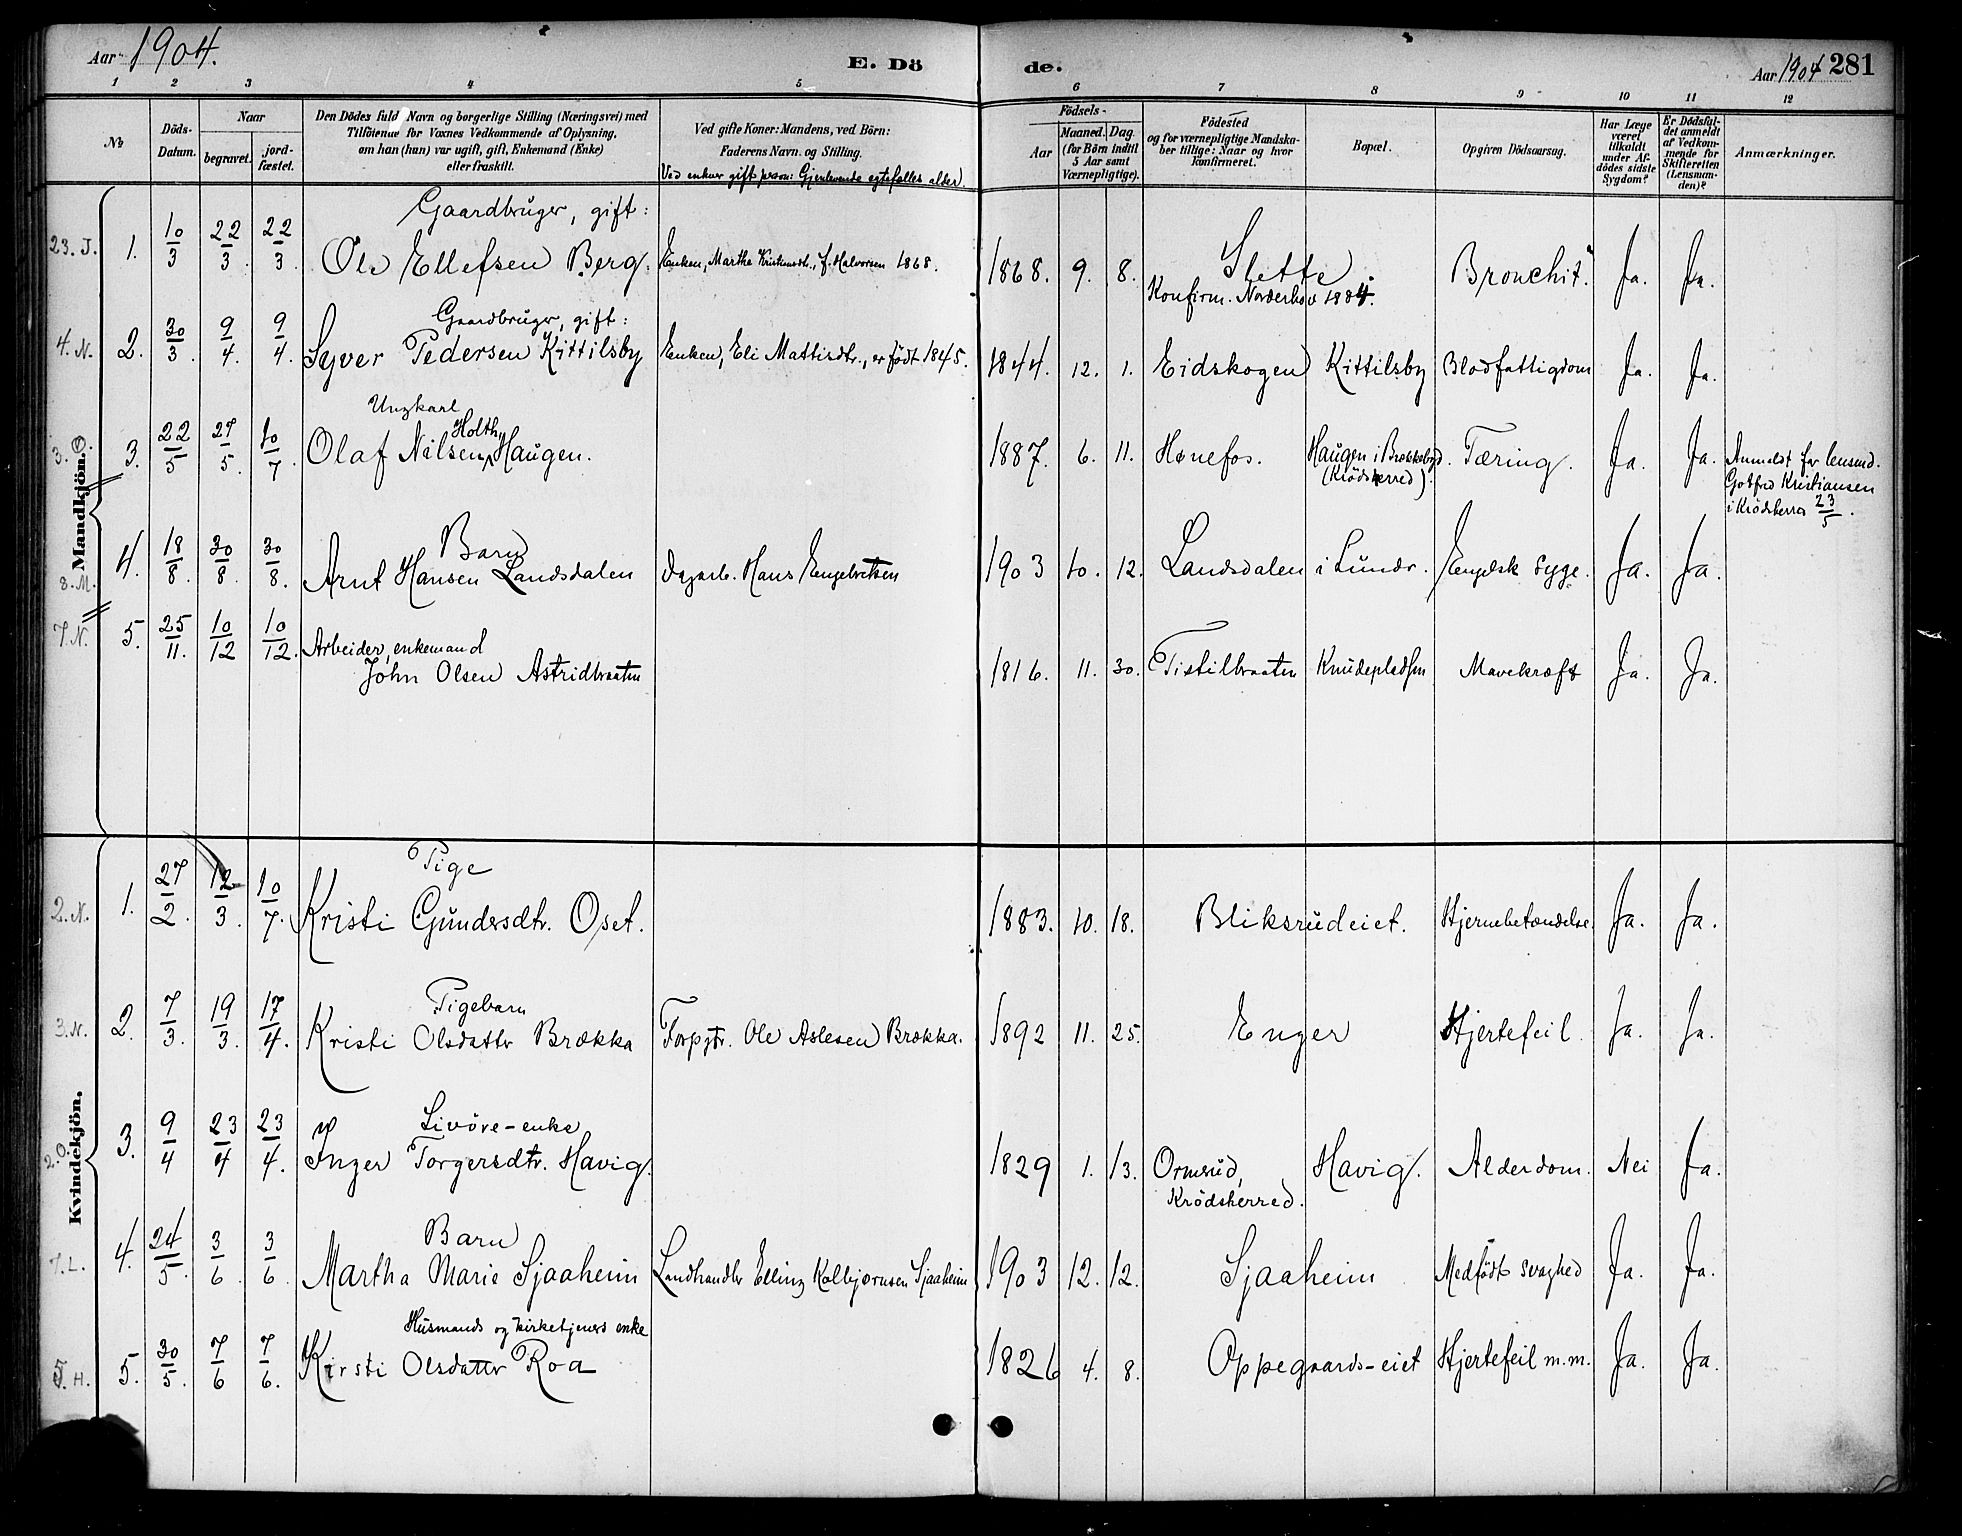 Aar 1904.
E. Döde.
Aar 1904 281
1 2 3 4 5 6 7 8 9 10 11 12
No
Döds-Datum.
Naar
begravet.
jordfæstet.
Den Dödes fulde Navn og borgerlige Stilling (Næringsvei) med
Tilföiende for Voxnes Vedkommende af Oplysning,
om han (hun) var ugift, gift, Enkemand (Enke)
eller fraskilt.
Ved gifte Koner: Mandens, ved Börn:
Faderens Navn og Stilling.
Ved enhver gift person: Gjenlevende egtefælles alder.
Födsels-
Aar
Maaned. Dag.
(for Börn indtil
5 Aar samt
Værnepligtige).
Födested
og for værnepligtige Mandskaber tillige: Naar og hvor
konfirmeret.
Bopæl.
Opgiven Dödsaarsag.
Har Læge
været
tilkaldt
under Afdödes sidste
Sygdom?
Er Dödsfaldet anmeldt
af Vedkommende for
Skifteretten
(Lensmanden)?
Anmærkninger.
Mandkjön.
Gaardbruger, gift:
23. J. 1. 10/3 22/3. 22/3. Ole Ellefsen Berg. Enken, Marthe Kristinsdt., f. Halvorsen 1868. 1868. 9. 8. Slette. Bronchit. Ja. Ja.
Konfirm. Norderhov 1884.
Gaardbruger, gift:
4. N. 2. 30/3. 9/4. 9/4. Syver Pedersen Kittilsby Enken, Eli Mattisdtr., er født 1845. 1844. 12. 1. Eidskogen Kittilsby Blodfattigdom Ja. Ja.
Ungkarl
Holth,
3. O. 3. 22/5 27/5. 10/7. Olaf Nilsen Haugen. 1887. 6. 11. Hønefos. Haugen i Brekkebygd. Tæring. Ja. Ja. Anmeldt for lensmd.
(Krödsherred). Gotfred Kristiansen
i Krödsherred 23/5.
Barn
8. M. 4. 18/8. 30/8. 30/8. Arnt Hansen Landsdalen Dagarb. Hans Engebretsen 1903 10. 12. Landsdalen i Lundr. Engelsk syge. Ja. Ja.
7. N. 5. 25/11. 10/12 10/12. Arbeider, enkemand
John Olsen Astridbraaten 1816. 11. 30. Tistilbraaten Knudepladsen Mavekræft Ja. Ja.
Kvindekjön.
Pige
2. N. 1. 27/2. 12/3. 10/7. Kristi Gundersdtr. Oset. 1883. 10. 18. Bliksrudeiet. Hjernebetændelse. Ja. Ja.
Pigebarn
3. N. 2. 7/3. 19/3. 17/4. Kristi Olsdatter Brækka Forpgtr. Ole Aslesen Brækka. 1892 11. 25. Enger Hjertefeil. Ja. Ja.
Livöre-enke
2. O. 3. 9/4 23/4 23/4. Inger Torgersdtr. Havig. 1829 1. 13. Ormerud, Havig. Alderdom. Nei Ja.
Krödsherred.
Barn
7. L. 4. 24/5. 3/6. 3/6. Martha Marie Sjaaheim Landhandler Elling Kolbjørnsen Sjaaheim 1903 12. 12. Sjaaheim Medfödt svaghed Ja. Ja.
Husmands og kirketjeners enke
5. H. 5. 30/5. 7/6 7/6. Kirsti Olsdatter Roa 1826 4. 8. Oppegaards-eiet Hjertefeil m.m. Ja. Ja.